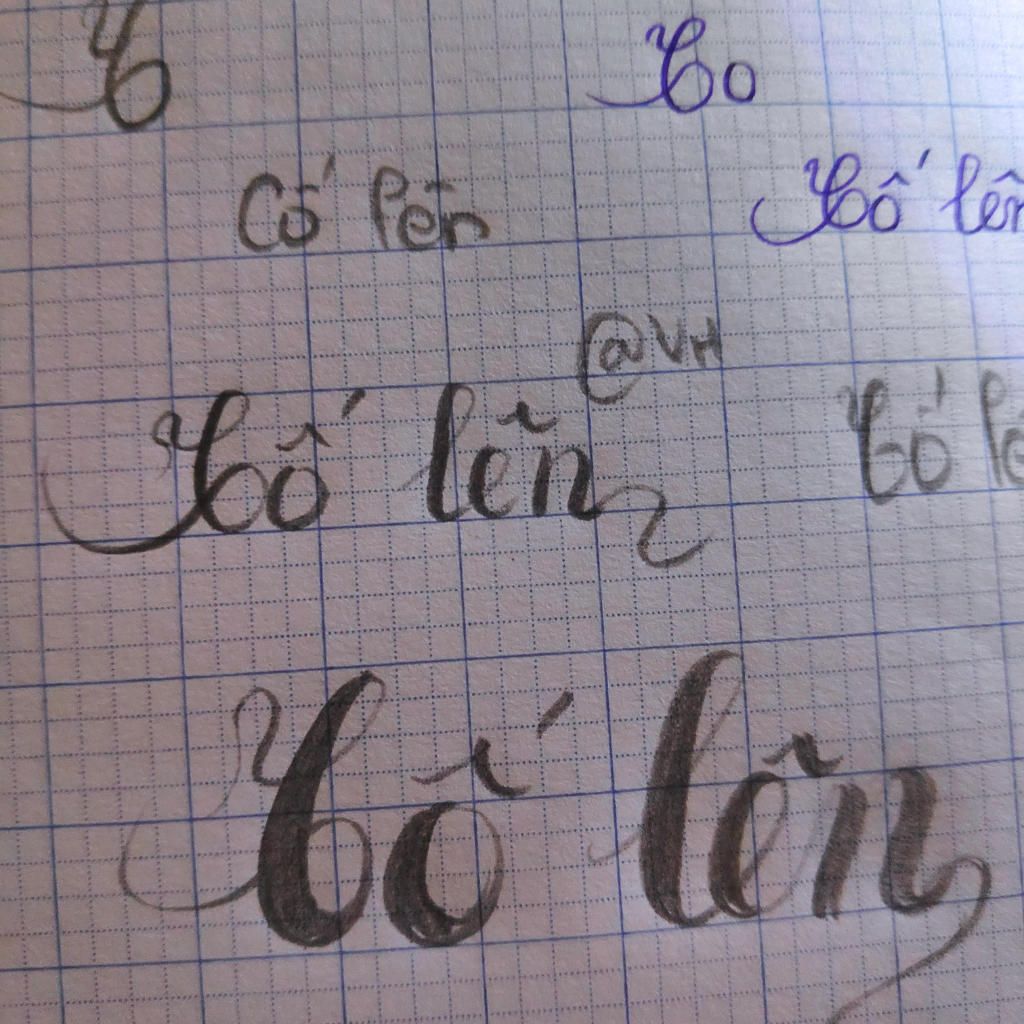 C Co
Cố lên Cố lên
@VH
Cố lên Cố lê
Cố lên